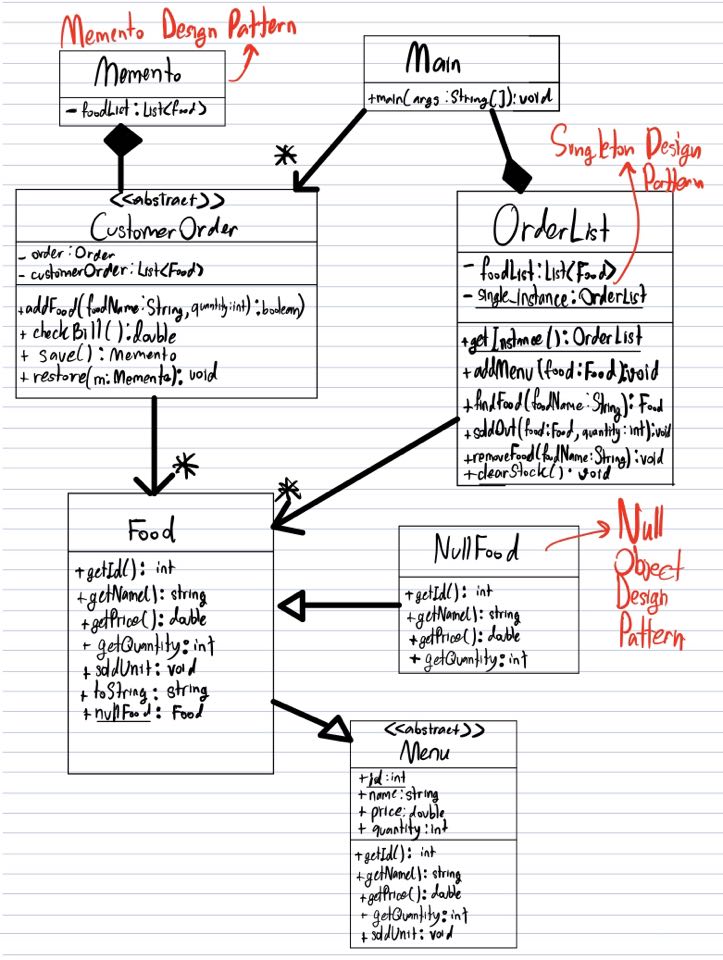 Memento Design Pattern
Memento
- foodList : List<Food>
Main
+main(args : String[]): void
*
Singleton Design
Pattern
<<abstract>>
CustomerOrder
- order : Order
- customerOrder : List<Food>
+addFood(foodName:String, quantity:int) : boolean)
+ checkBill() : double
+ save() : Memento
+ restore(m: Memento): void
OrderList
- foodList : List<Food>
- single_instance : OrderList
+ getInstance() : OrderList
+ addMenu(food : Food): void
+ findFood(foodName : String) : Food
+ soldOut(food: Food, quantity : int): void
+ removeFood(foodName: String) : void
+ clearStock() : void
*
*
Food
+ getId() : int
+ getName() : string
+ getPrice() : double
+ getQuantity : int
+ soldUnit : void
+ toString : string
+ nullFood : Food
NullFood
+ getId() : int
+ getName() : string
+ getPrice() : double
+ getQuantity : int
Null
Object
Design
Pattern
<<abstract>>
Menu
+ Id : int
+ name : string
+ price : double
+ quantity : int
+ getId() : int
+ getName() : string
+ getPrice() : double
+ getQuantity : int
+ soldUnit : void